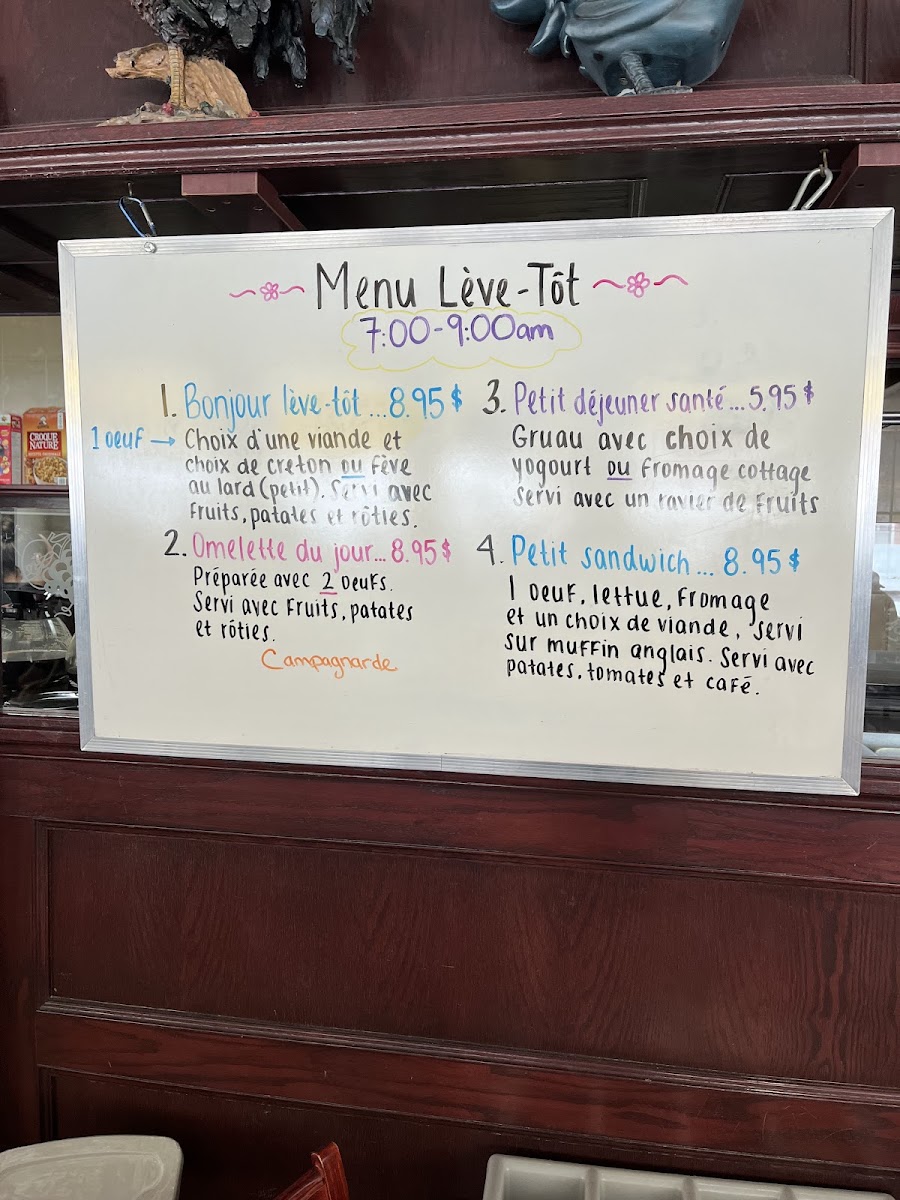 Menu Lève-Tôt
7:00-9:00am
1. Bonjour lève-tôt ... 8.95 $
1 oeuf → Choix d'une viande et
choix de creton ou fève
au lard (petit). Servi avec
fruits, patates et rôties.
2. Omelette du jour... 8.95 $
Préparée avec 2 oeufs.
Servi avec fruits, patates
et rôties.
Campagnarde
3. Petit déjeuner santé... 5.95 $
Gruau avec choix de
yogourt ou fromage cottage
servi avec un ravier de fruits
4. Petit sandwich ... 8.95 $
1 oeuf, lettue, fromage
et un choix de viande, servi
sur muffin anglais. Servi avec
patates, tomates et café.
CROQUE
NATURE